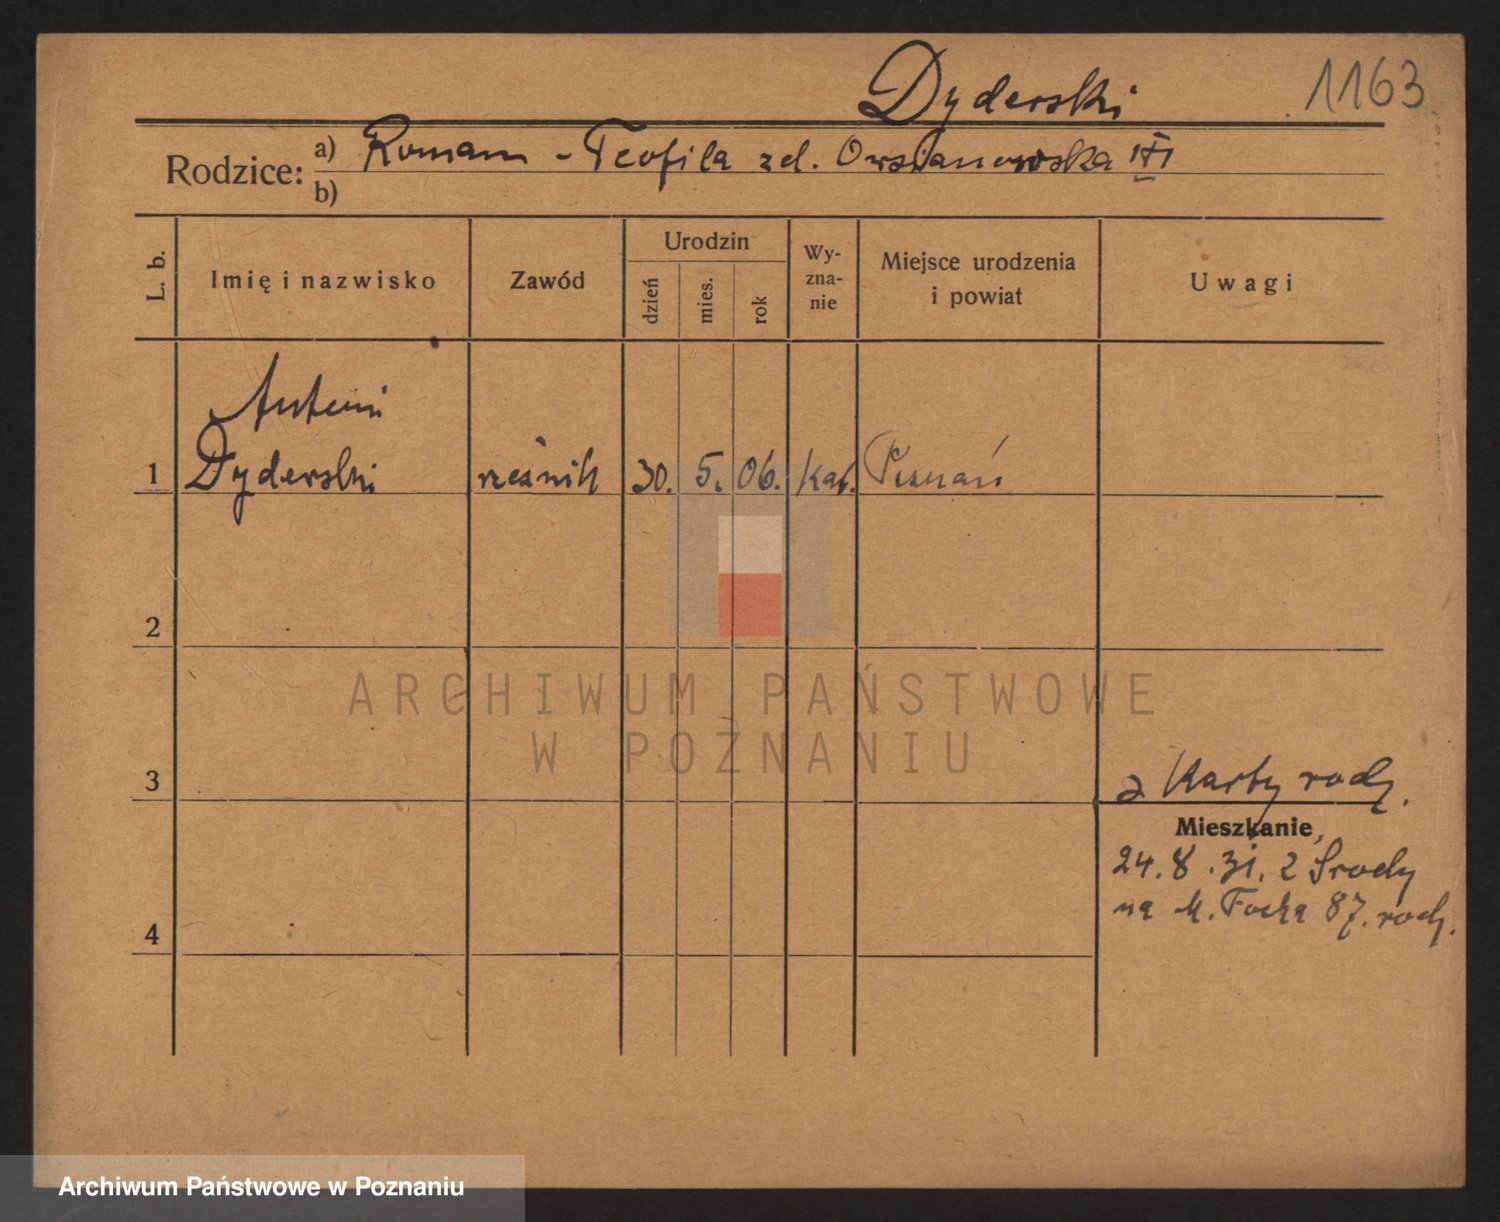 Dyderski
1163
Rodzice:
a) Roman - Teofila zd. Owsianowska
b)
L. b.
Imię i nazwisko
Zawód
Urodzin
dzień
mies.
rok
Wy-
zna-
nie
Miejsce urodzenia
i powiat
Uwagi
Antoni
1 Dyderski rzeźnik 30. 5. 06. kat. Poznań
2
ARCHIWUM PAŃSTWOWE
W POZNANIU
3
z Karty rodz.
Mieszkanie
24. 8. 31. z Środy
na M. Focha 87. rodz.
4
Archiwum Państwowe w Poznaniu